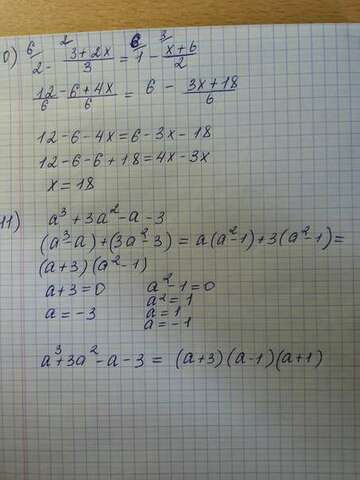 0) 6/ 2 - 2/ (3+2x)/3 = 6/ 1 - 3/ (x+6)/2
12/6 - (6+4x)/6 = 6 - (3x+18)/6
12-6-4x=6-3x-18
12-6-6+18=4x-3x
x=18
11) a³+3a²-a-3
(a³-a)+(3a²-3) = a(a²-1)+3(a²-1)=
(a+3)(a²-1)
a+3=0 a²-1=0
a=-3 a²=1
a=1
a=-1
a³+3a²-a-3 = (a+3)(a-1)(a+1)